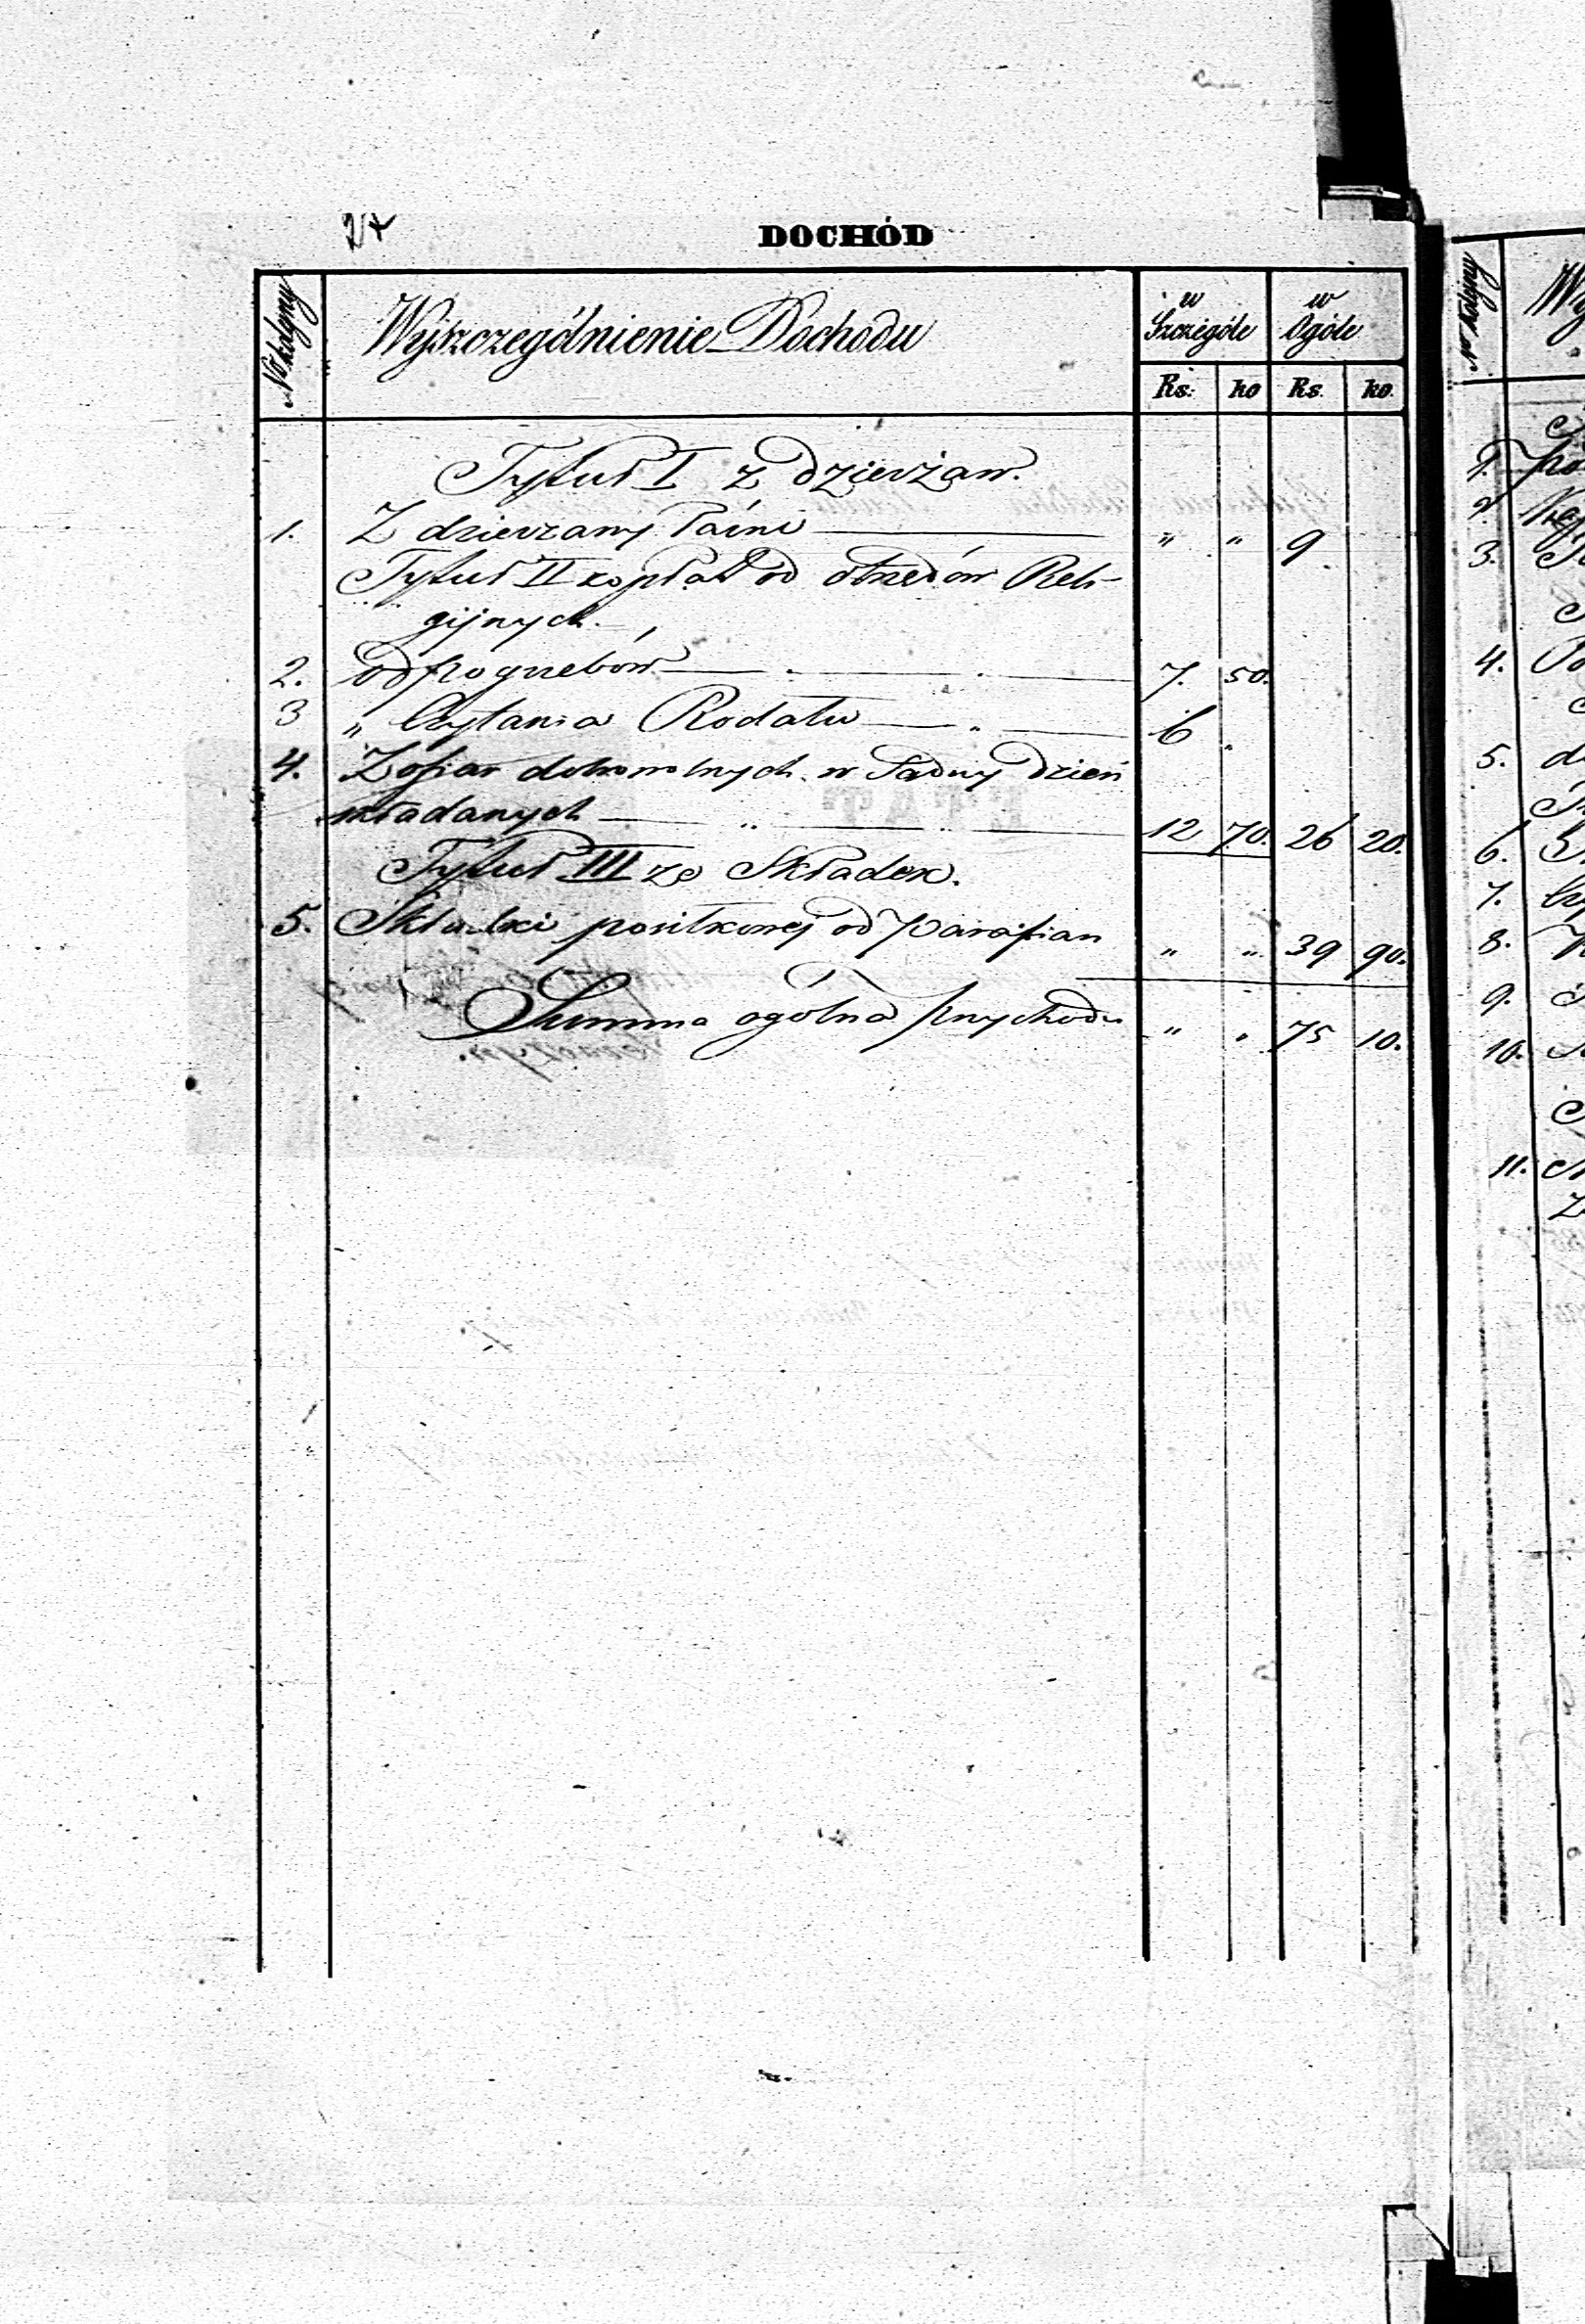 24
DOCHÓD
Wyszczególnienie Dochodu
w Szczególe
w Ogóle
Rs: ko Rs. ko.
Tytuł I z dzierżaw.
1. Z dzierzawy Łaźni " " 9
Tytuł II z opłat od obrzędów Reli-
gijnych.
2. od pogrzebów 7. 50.
3 " Czytania Rodału 6
4. Z ofiar dobrowolnych w Sądny dzień
składanych 12 70. 26 20.
Tytuł III ze Składek.
5. Składki posiłkowej od Parafian " " 39 90.
Summa ogólna przychodu " " 75 10.
1.
2.
3.
4.
5.
6.
7.
8.
9.
10.
11.